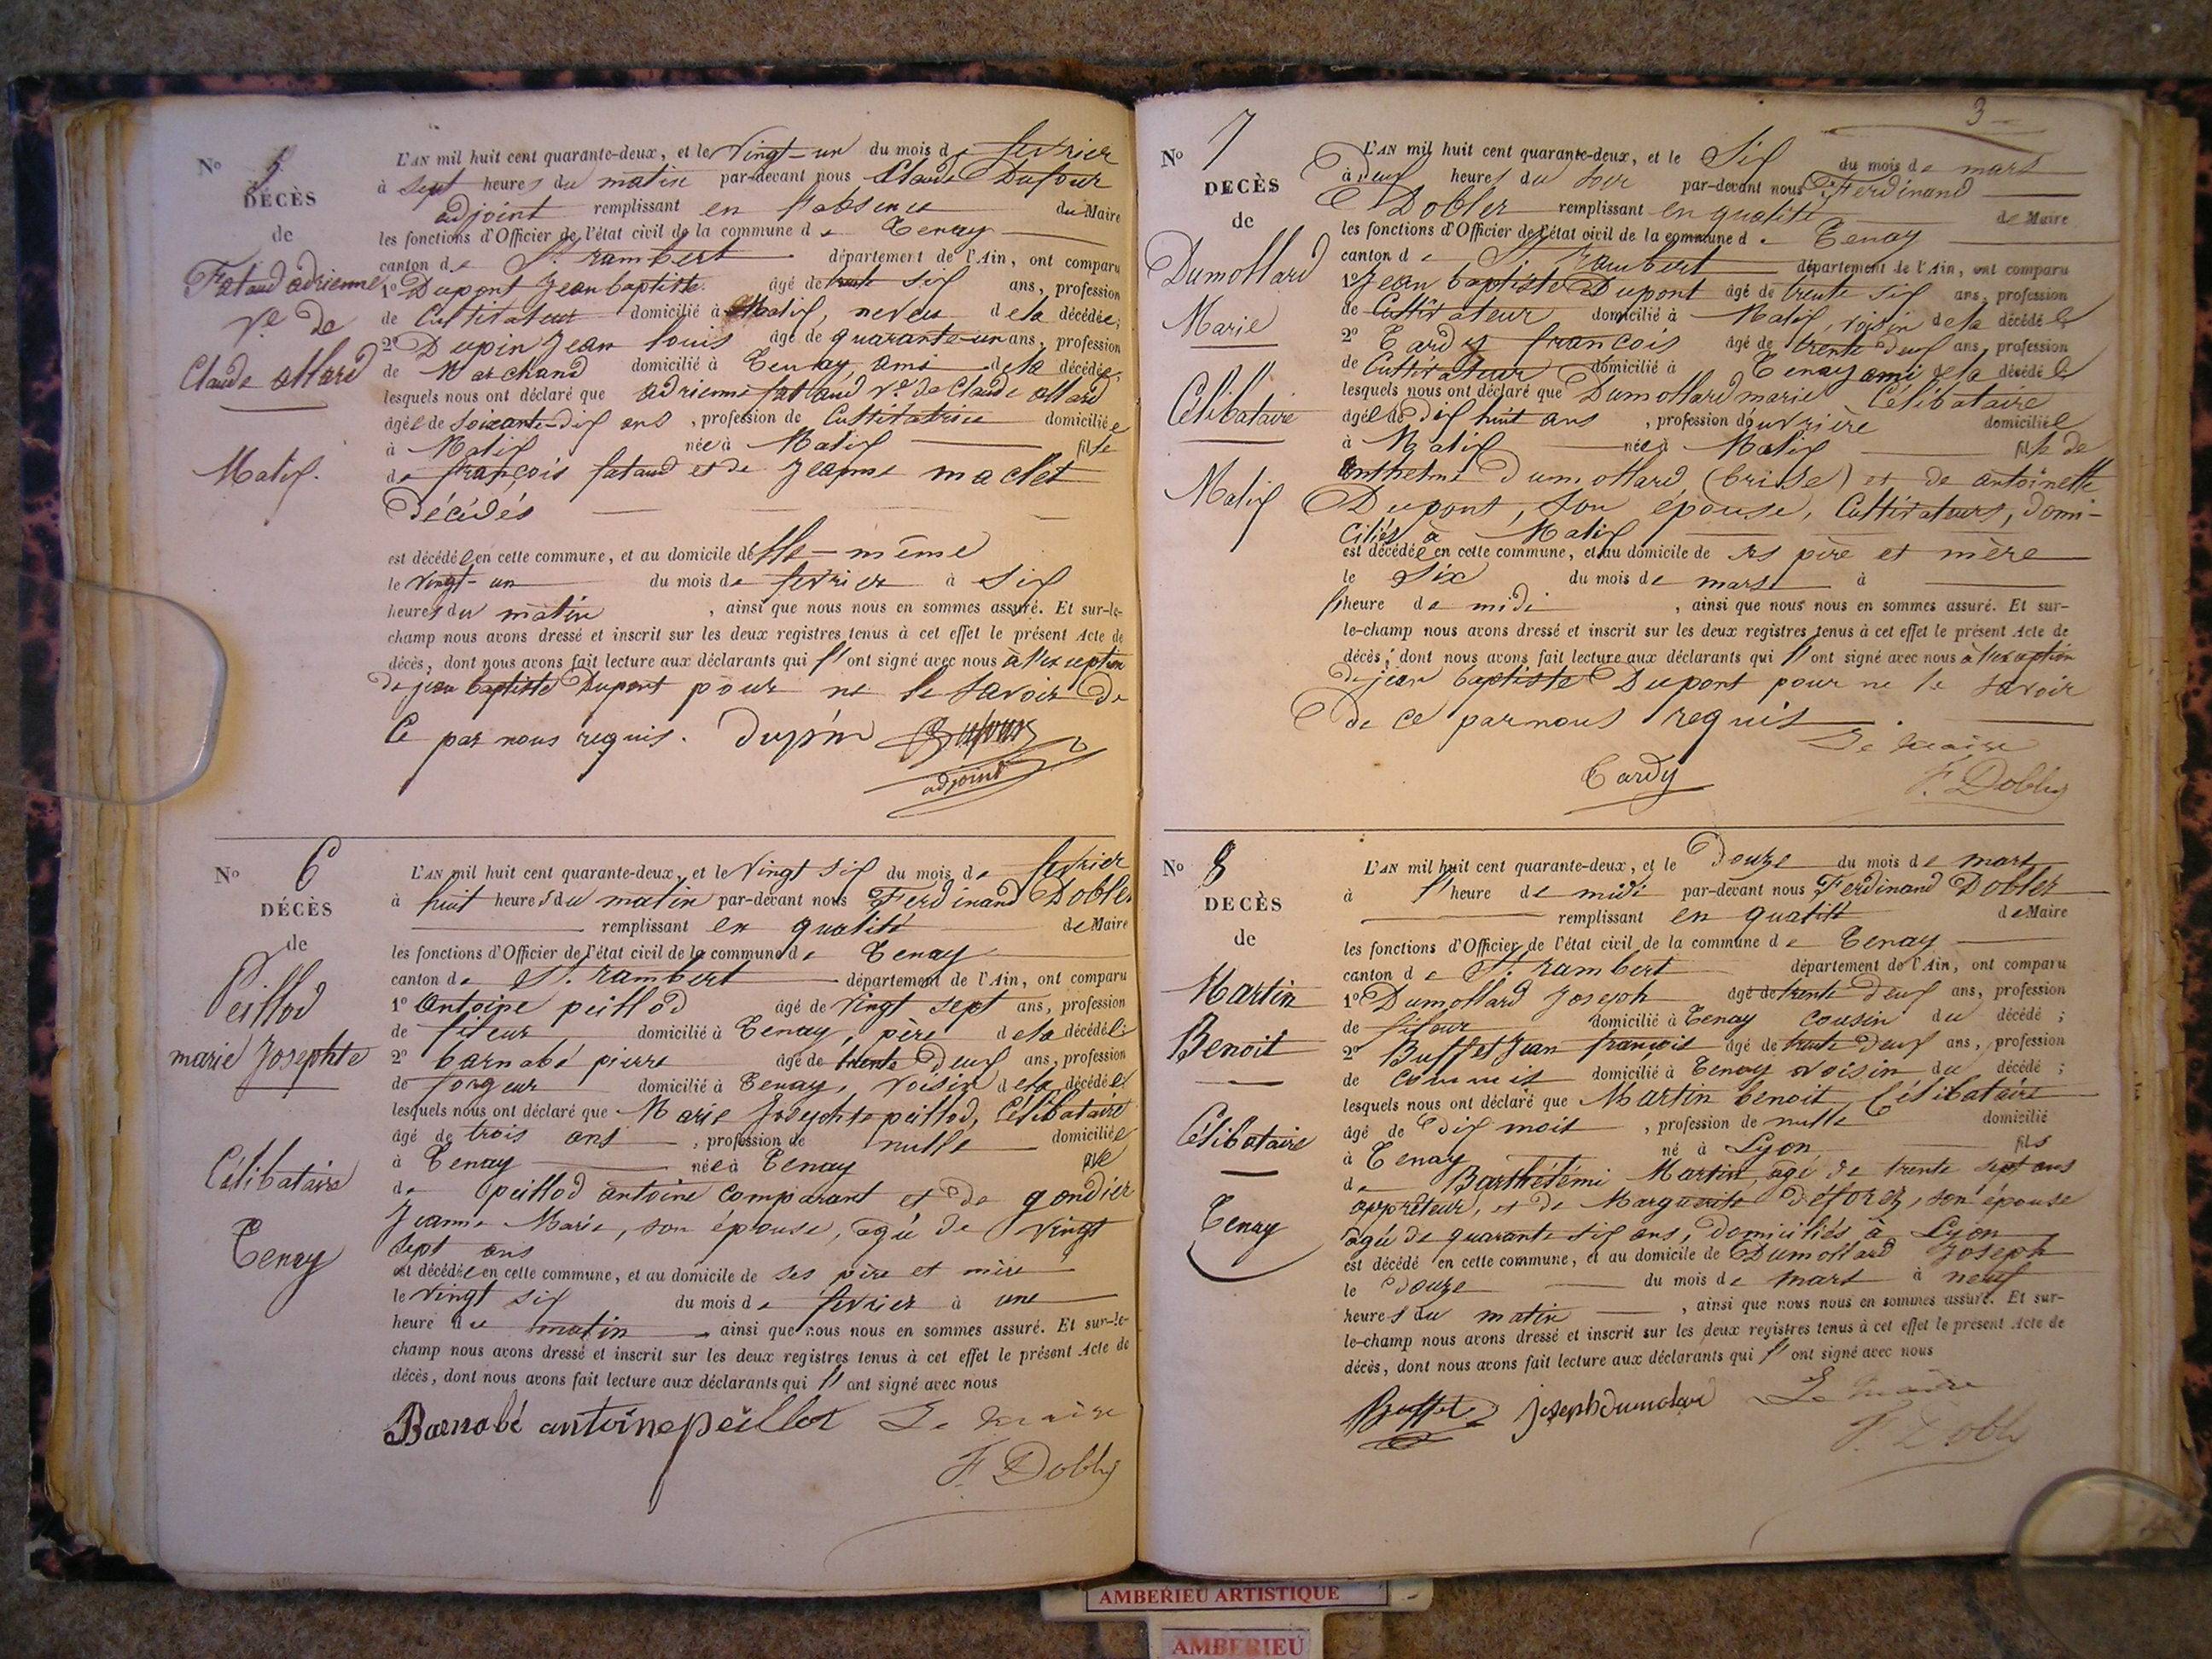 No 5
DÉCÈS
de
Fataud adrienne
Ve de
Claude allard
Matif.
L'AN mil huit cent quarante-deux, et le Vingt-un du mois de fevrier
à sept heures du matin par-devant nous Claude Dufour
adjoint remplissant en l'absence du Maire
les fonctions d'Officier de l'état civil de la commune de Tenay
canton de St. rambert département de l'Ain, ont comparu
1o Dupont Jean baptiste âgé de trente six ans, profession
de Cultivateur domicilié à Matif, neveu de la décédée;
2o Dupin Jean louis âgé de quarante-un ans, profession
de Marchand domicilié à Tenay, ami de la décédée;
lesquels nous ont déclaré que adrienne fataud Ve de Claude allard
âgée de soixante-dix ans, profession de Cultivatrice domiciliée
à Matif née à Matif fille
de françois fataud et de Jeanne maclet
Décédés
est décédée en cette commune, et au domicile d'elle-même
le vingt-un du mois de fevrier à six
heures du matin, ainsi que nous nous en sommes assuré. Et sur-le-
champ nous avons dressé et inscrit sur les deux registres tenus à cet effet le présent Acte de
décès, dont nous avons fait lecture aux déclarants qui l'ont signé avec nous à l'exception
de jean baptiste Dupont pour ne le savoir de
Ce par nous requis. Dupin Dufour
adjoint
No 6
DÉCÈS
de
Peillod
marie Josephte
Célibataire
Tenay
L'AN mil huit cent quarante-deux, et le Vingt six du mois de fevrier
à huit heures du matin par-devant nous Ferdinand Dobler
remplissant en qualité de Maire
les fonctions d'Officier de l'état civil de la commune de Tenay
canton de St. rambert département de l'Ain, ont comparu
1o Antoine peillod âgé de vingt sept ans, profession
de fileur domicilié à Tenay, père de la décédée;
2o barnabé pierre âgé de trente Deux ans, profession
de forgeur domicilié à Tenay, voisin de la décédée
lesquels nous ont déclaré que Marie Josephte peillod, Célibataire
âgé de trois ans, profession de nulle domiciliée
à Tenay née à Tenay
de peillod antoine comparant et de gondier
Jeanne Marie, son épouse, agée de Vingt
sept ans
est décédée en cette commune, et au domicile de ses père et mère
le Vingt six du mois de fevrier à une
heure du matin ainsi que nous nous en sommes assuré. Et sur-le-
champ nous avons dressé et inscrit sur les deux registres tenus à cet effet le présent Acte de
décès, dont nous avons fait lecture aux déclarants qui l'ont signé avec nous
Barnabé antoine peillot Le maire
F. Dobler
3
No 7
DÉCÈS
de
Dumollard
Marie
Célibataire
Matif
L'AN mil huit cent quarante-deux, et le Six du mois de mars
à deux heures du soir par-devant nous Ferdinand
Dobler remplissant en qualité de Maire
les fonctions d'Officier de l'état civil de la commune de Tenay
canton de St. Rambert département de l'Ain, ont comparu
1o Jean baptiste Dupont âgé de trente six ans, profession
de Cultivateur domicilié à Matif, voisin de la décédée
2o Tardy françois âgé de trente deux ans, profession
de Cultivateur domicilié à Tenay ami de la décédée
lesquels nous ont déclaré que Dumollard marie Célibataire
âgée de dix huit ans, profession d'ouvrière domiciliée
à Matif née à Matif fille de
anthelme Dumollard (brisse) et de antoinette
Dupont, son épouse, Cultivateurs, domi-
ciliés à Matif
est décédée en cette commune, et au domicile de ses père et mère
le Six du mois de mars à
l'heure de midi, ainsi que nous nous en sommes assuré. Et sur-
le-champ nous avons dressé et inscrit sur les deux registres tenus à cet effet le présent Acte de
décès, dont nous avons fait lecture aux déclarants qui l'ont signé avec nous à l'exception
de jean baptiste Dupont pour ne le savoir
de ce par nous requis.
Le maire
Tardy F. Dobler
No 8
DÉCÈS
de
Martin
Benoit
Célibataire
Tenay
L'AN mil huit cent quarante-deux, et le Douze du mois de mars
à l'heure de midi par-devant nous Ferdinand Dobler
remplissant en qualité de Maire
les fonctions d'Officier de l'état civil de la commune de Tenay
canton de St. rambert département de l'Ain, ont comparu
1o Dumollard Joseph âgé de trente Deux ans, profession
de fileur domicilié à Tenay cousin du décédé;
2o Buffet Jean françois âgé de trente deux ans, profession
de commis domicilié à Tenay voisin du décédé;
lesquels nous ont déclaré que Martin benoit, Célibataire
âgé de Dix mois, profession de nulle domicilié
à Tenay né à Lyon fils
de Barthélémi Martin, agé de trente sept ans
apprêteur, et de Marguerite Déforez, son épouse
agée de quarante six ans, domiciliés à Lyon
est décédé en cette commune, et au domicile de Dumollard Joseph
le Douze du mois de mars à neuf
heures du matin, ainsi que nous nous en sommes assuré. Et sur-
le-champ nous avons dressé et inscrit sur les deux registres tenus à cet effet le présent Acte de
décès, dont nous avons fait lecture aux déclarants qui l'ont signé avec nous
Buffet joseph dumolard Le maire
F. Dobler
AMBERIEU ARTISTIQUE
AMBERIEU